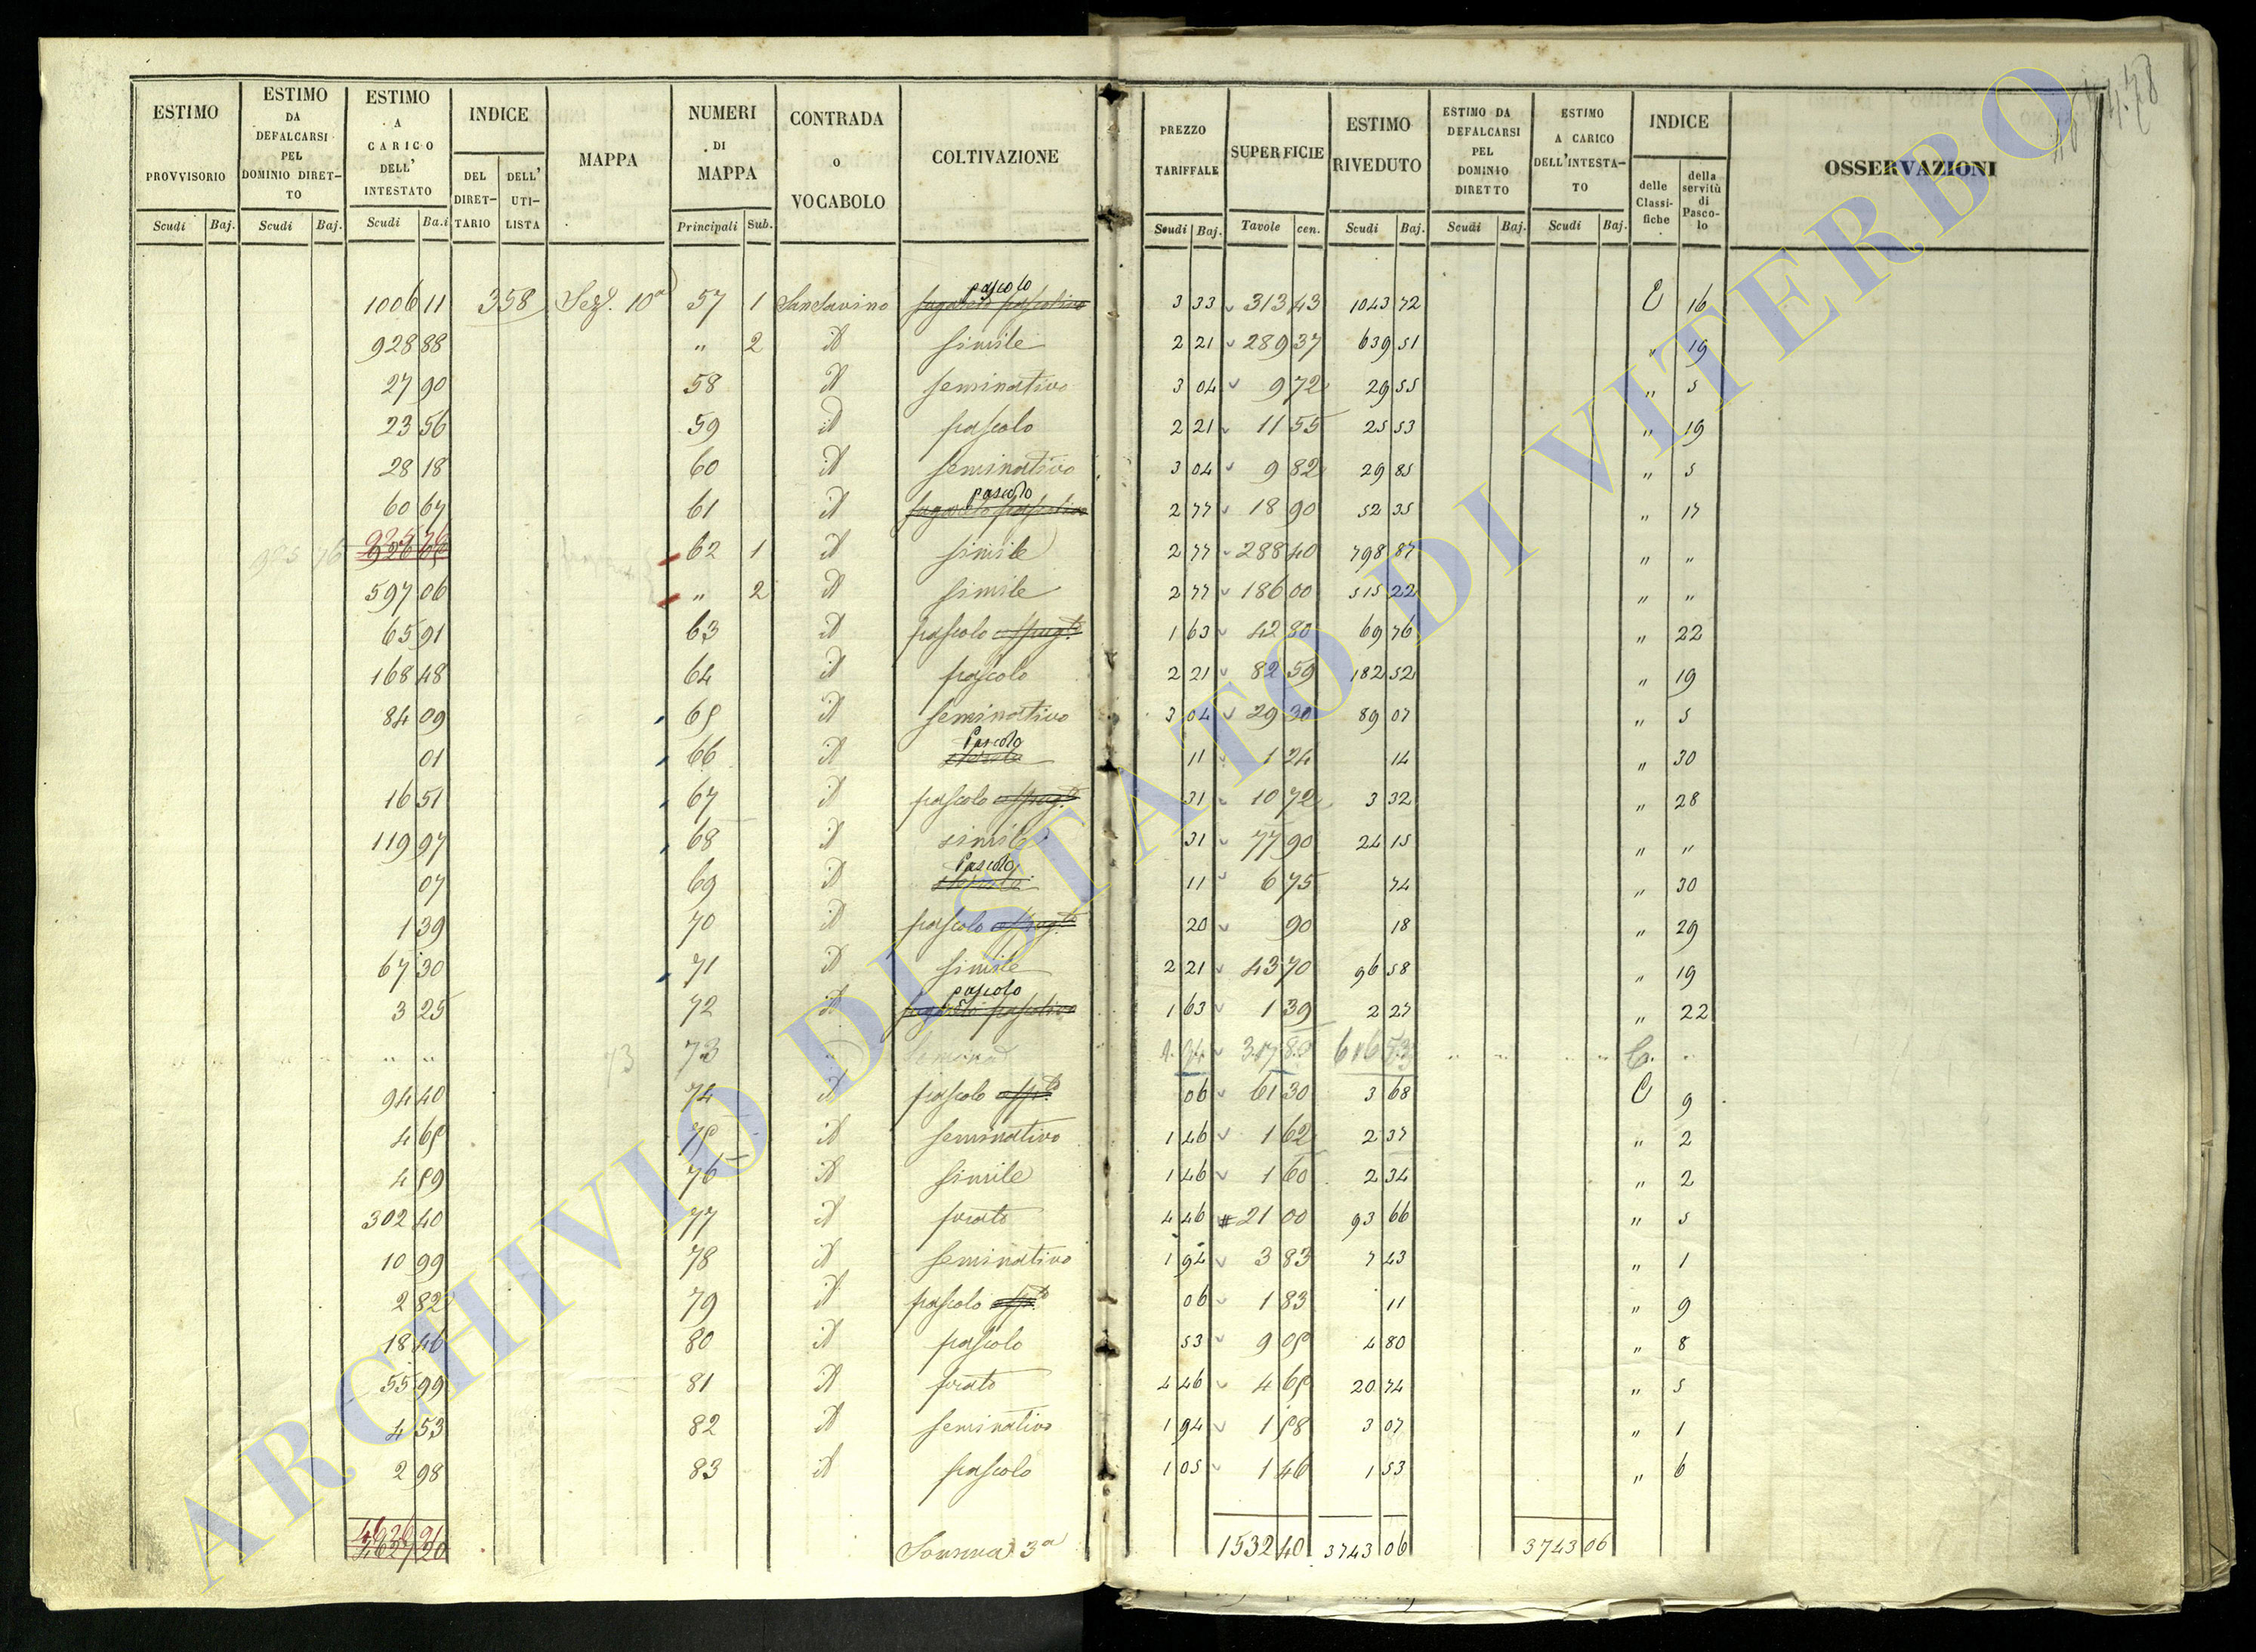 ESTIMO PROVVISORIO
ESTIMO DA DEFALCARSI PEL DOMINIO DIRET-TO
ESTIMO A CARICO DELL' INTESTATO
INDICE
DEL DIRET-TARIO
DELL' UTI-LISTA
MAPPA
NUMERI DI MAPPA
CONTRADA o VOCABOLO
COLTIVAZIONE
PREZZO TARIFFALE
SUPERFICIE
ESTIMO RIVEDUTO
ESTIMO DA DEFALCARSI PEL DOMINIO DIRETTO
ESTIMO A CARICO DELL'INTESTA-TO
INDICE
delle Classi-fiche
della servitù di Pasco-lo
OSSERVAZIONI
Scudi Baj. Scudi Baj. Scudi Ba.i Principali Sub. Scudi Baj. Tavole cen. Scudi Baj. Scudi Baj. Scudi Baj.
pascolo
1006 11 358 Sez. 10a 57 1 San Savino 3 33 313 43 1043 72 E 16
928 88 " 2 id simile 2 21 289 37 639 51 " 19
27 90 58 id seminativo 3 04 9 72 29 55 " 5
23 56 59 id pascolo 2 21 11 55 25 53 " 19
28 18 60 id seminativo 3 04 9 82 29 85 " 5
pascolo
60 67 61 id 2 77 18 90 52 35 " 17
62 1 id simile 2 77 288 40 798 87 " "
597 06 " 2 id simile 2 77 186 00 515 22 " "
65 91 63 id pascolo 1 63 42 80 69 76 " 22
168 48 64 id pascolo 2 21 82 59 182 52 " 19
84 09 65 id seminativo 3 04 29 30 89 07 " 5
Pascolo
01 66 id 11 1 24 14 " 30
16 51 67 id pascolo 31 10 72 3 32 " 28
119 97 68 id simile 31 77 90 24 15 " "
Pascolo
07 69 id 11 6 75 74 " 30
1 39 70 id pascolo 20 90 18 " 29
67 30 71 id simile 2 21 43 70 96 58 " 19
pascolo
3 25 72 id 1 63 1 39 2 27 " 22
" " 73 73
94 40 74 id pascolo 06 61 30 3 68 E 9
4 65 75 id seminativo 1 46 1 62 2 37 " 2
4 59 76 id simile 1 46 1 60 2 34 " 2
302 40 77 id prato 4 46 21 00 93 66 " 5
10 99 78 id seminativo 1 94 3 83 7 43 " 1
2 82 79 id pascolo 06 1 83 11 " 9
18 46 80 id pascolo 53 9 05 4 80 " 8
55 99 81 id prato 4 46 4 65 20 74 " 5
4 53 82 id seminativo 1 94 1 58 3 07 " 1
2 98 83 id pascolo 1 05 1 46 1 53 " 6
Somma 3a 1532 40 3743 06 3743 06
ARCHIVIO DI STATO DI VITERBO